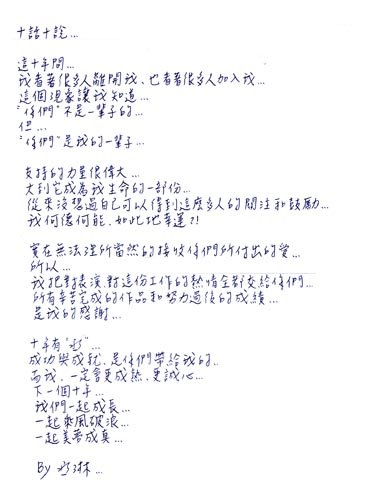 十話十說...
這十年間...
我看著很多人離開我、也看著很多人加入我...
這個現象讓我知道...
"你們"不是一輩子的...
但...
"你們"是我的一輩子...
支持的力量很偉大...
大到它成為我生命的一部份...
從來沒想過自己可以得到這麼多人的關注和鼓勵...
我何德何能、如此地幸運?!
實在無法理所當然的接收你們所付出的愛...
所以...
我把對表演、對這份工作的熱情全部交給你們...
所有辛苦完成的作品和努力過後的成績...
是我的感謝...
十年有"丞"...
成功與成就、是你們帶給我的..
而我、一定會更成熟、更誠心...
下一個十年...
我們一起成長...
一起乘風破浪...
一起美夢成真...
By 丞琳...